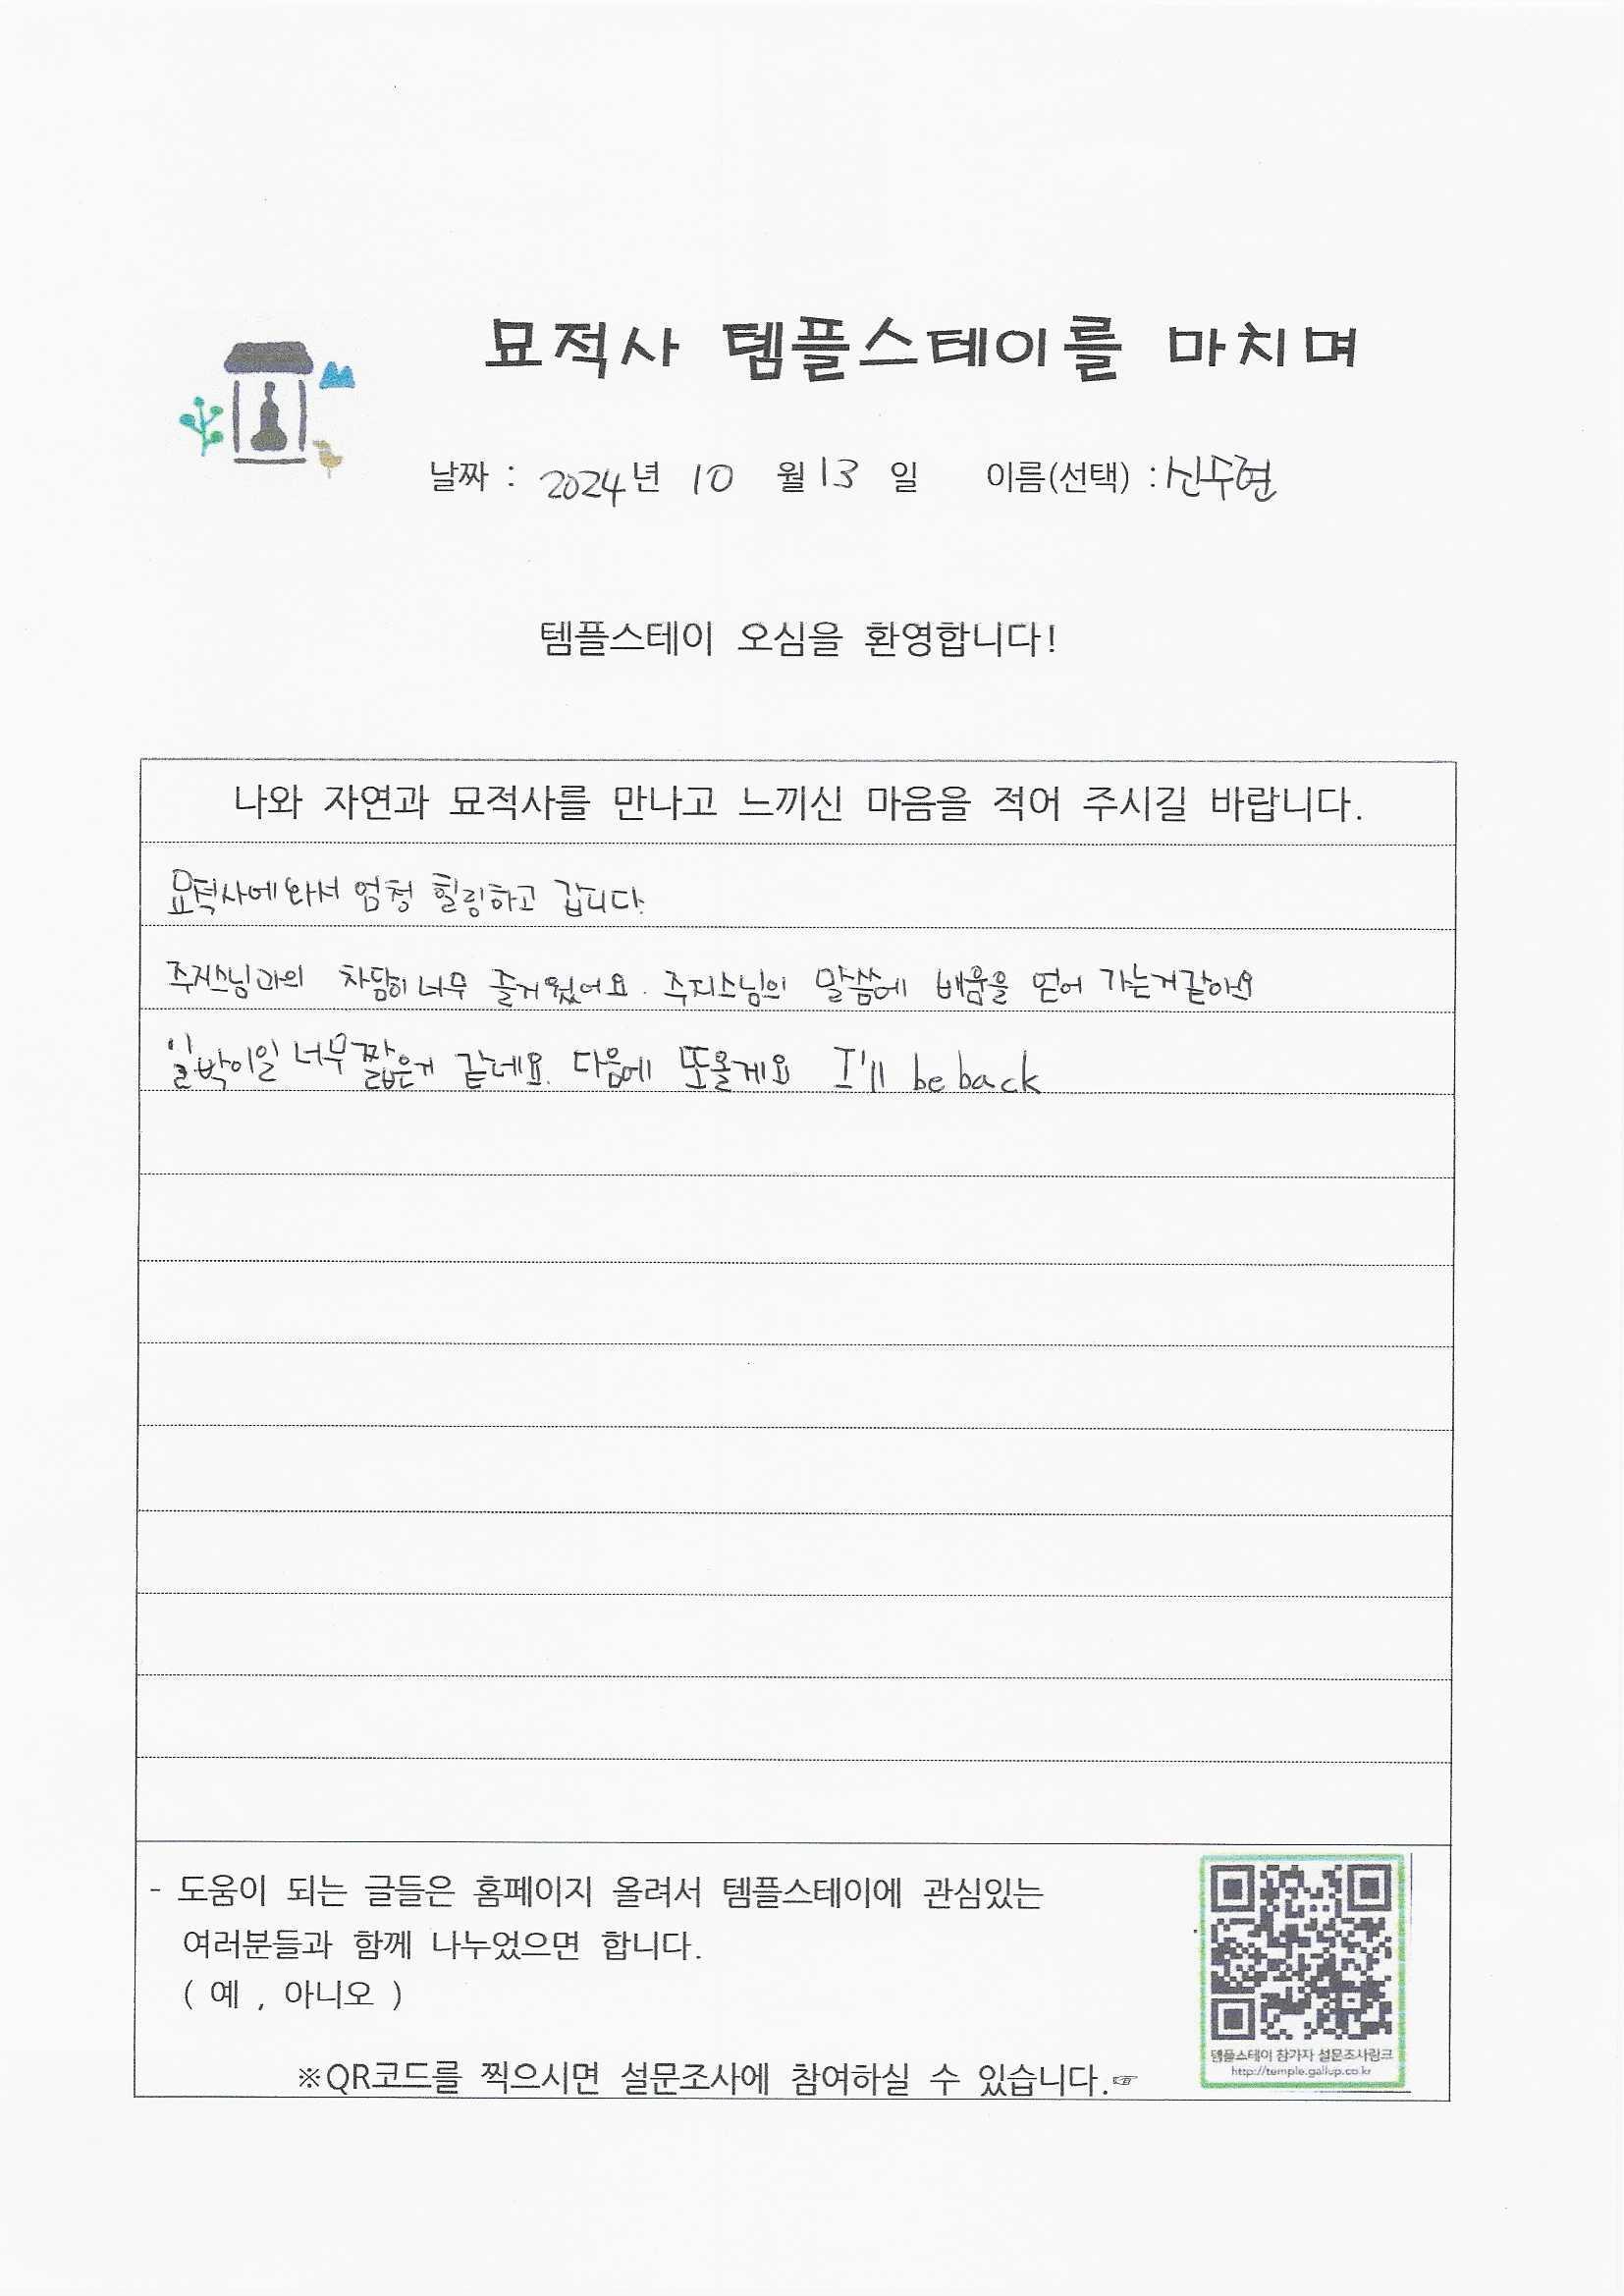 묘적사 템플스테이를 마치며
날짜 : 2024년 10 월 13 일 이름(선택) : 신수현
템플스테이 오심을 환영합니다!
나와 자연과 묘적사를 만나고 느끼신 마음을 적어 주시길 바랍니다.
묘적사에 와서 엄청 힐링하고 갑니다.
주지스님과의 차담이 너무 즐거웠어요. 주지스님의 말씀에 배움을 얻어 가는거같아요
일박이일 너무 짧은거 같네요. 다음에 또올게요 I'll be back
- 도움이 되는 글들은 홈페이지 올려서 템플스테이에 관심있는
여러분들과 함께 나누었으면 합니다.
( 예 , 아니오 )
템플스테이 참가자 설문조사링크
http://temple.gallup.co.kr
※QR코드를 찍으시면 설문조사에 참여하실 수 있습니다.☞